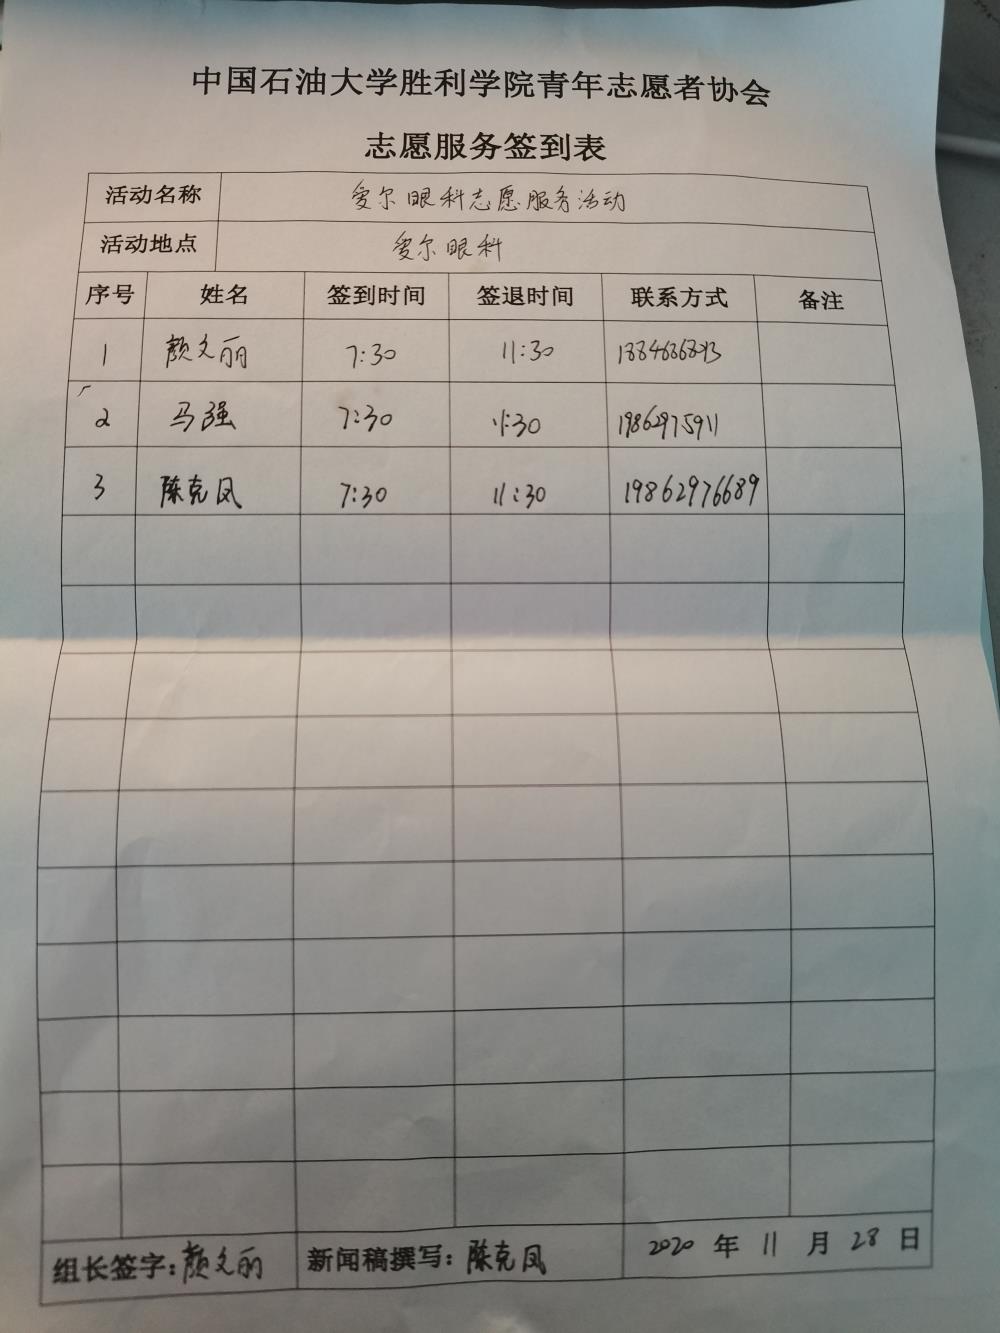 中国石油大学胜利学院青年志愿者协会
志愿服务签到表
活动名称 爱尔眼科志愿服务活动
活动地点 爱尔眼科
序号 姓名 签到时间 签退时间 联系方式 备注
1 颜文丽 7:30 11:30
2 马强 7:30 11:30 19862975911
3 陈克凤 7:30 11:30 19862976689
组长签字:颜文丽 新闻稿撰写:陈克凤 2020 年 11 月 28 日